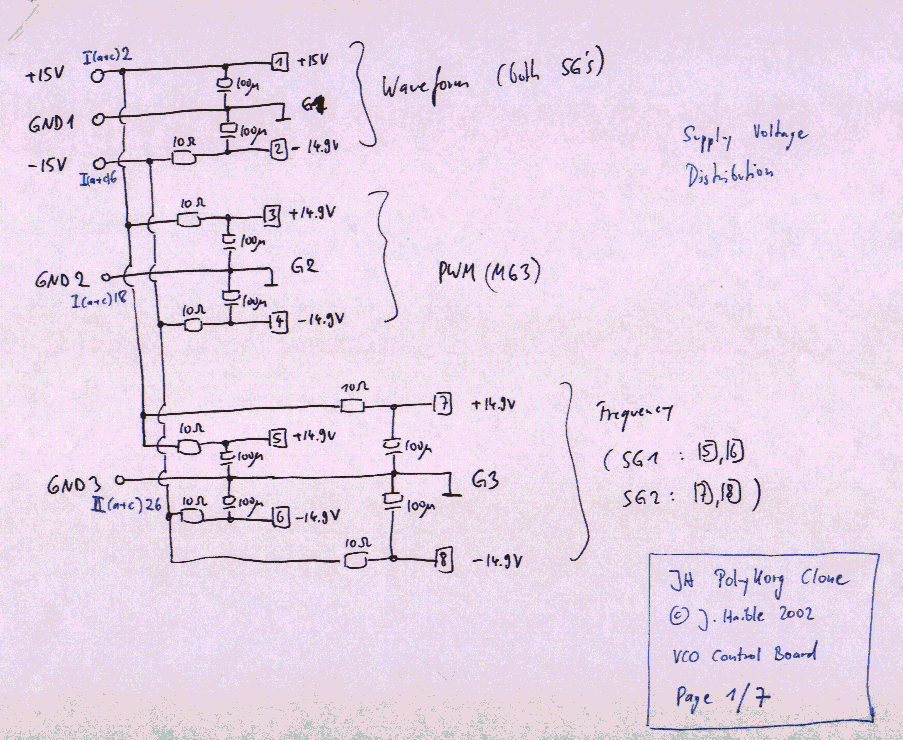 +15V I(a+c)2 1 +15V
100µ
GND1 G1
100µ
-15V 10Ω 2 -14.9V
I(a+c)6
Waveform (both SG's)
Supply Voltage
Distribution
10Ω 3 +14.9V
100µ
GND2 G2
I(a+c)18 100µ
10Ω 4 -14.9V
PWM (MG3)
10Ω 7 +14.9V
10Ω 5 +14.9V
100µ 100µ
GND3 G3
II(a+c)26 100µ 100µ
10Ω 6 -14.9V
10Ω 8 -14.9V
Frequency
(SG1 : 5,6
SG2 : 7,8)
JH PolyKorg Clone
© J. Haible 2002
VCO Control Board
Page 1/7